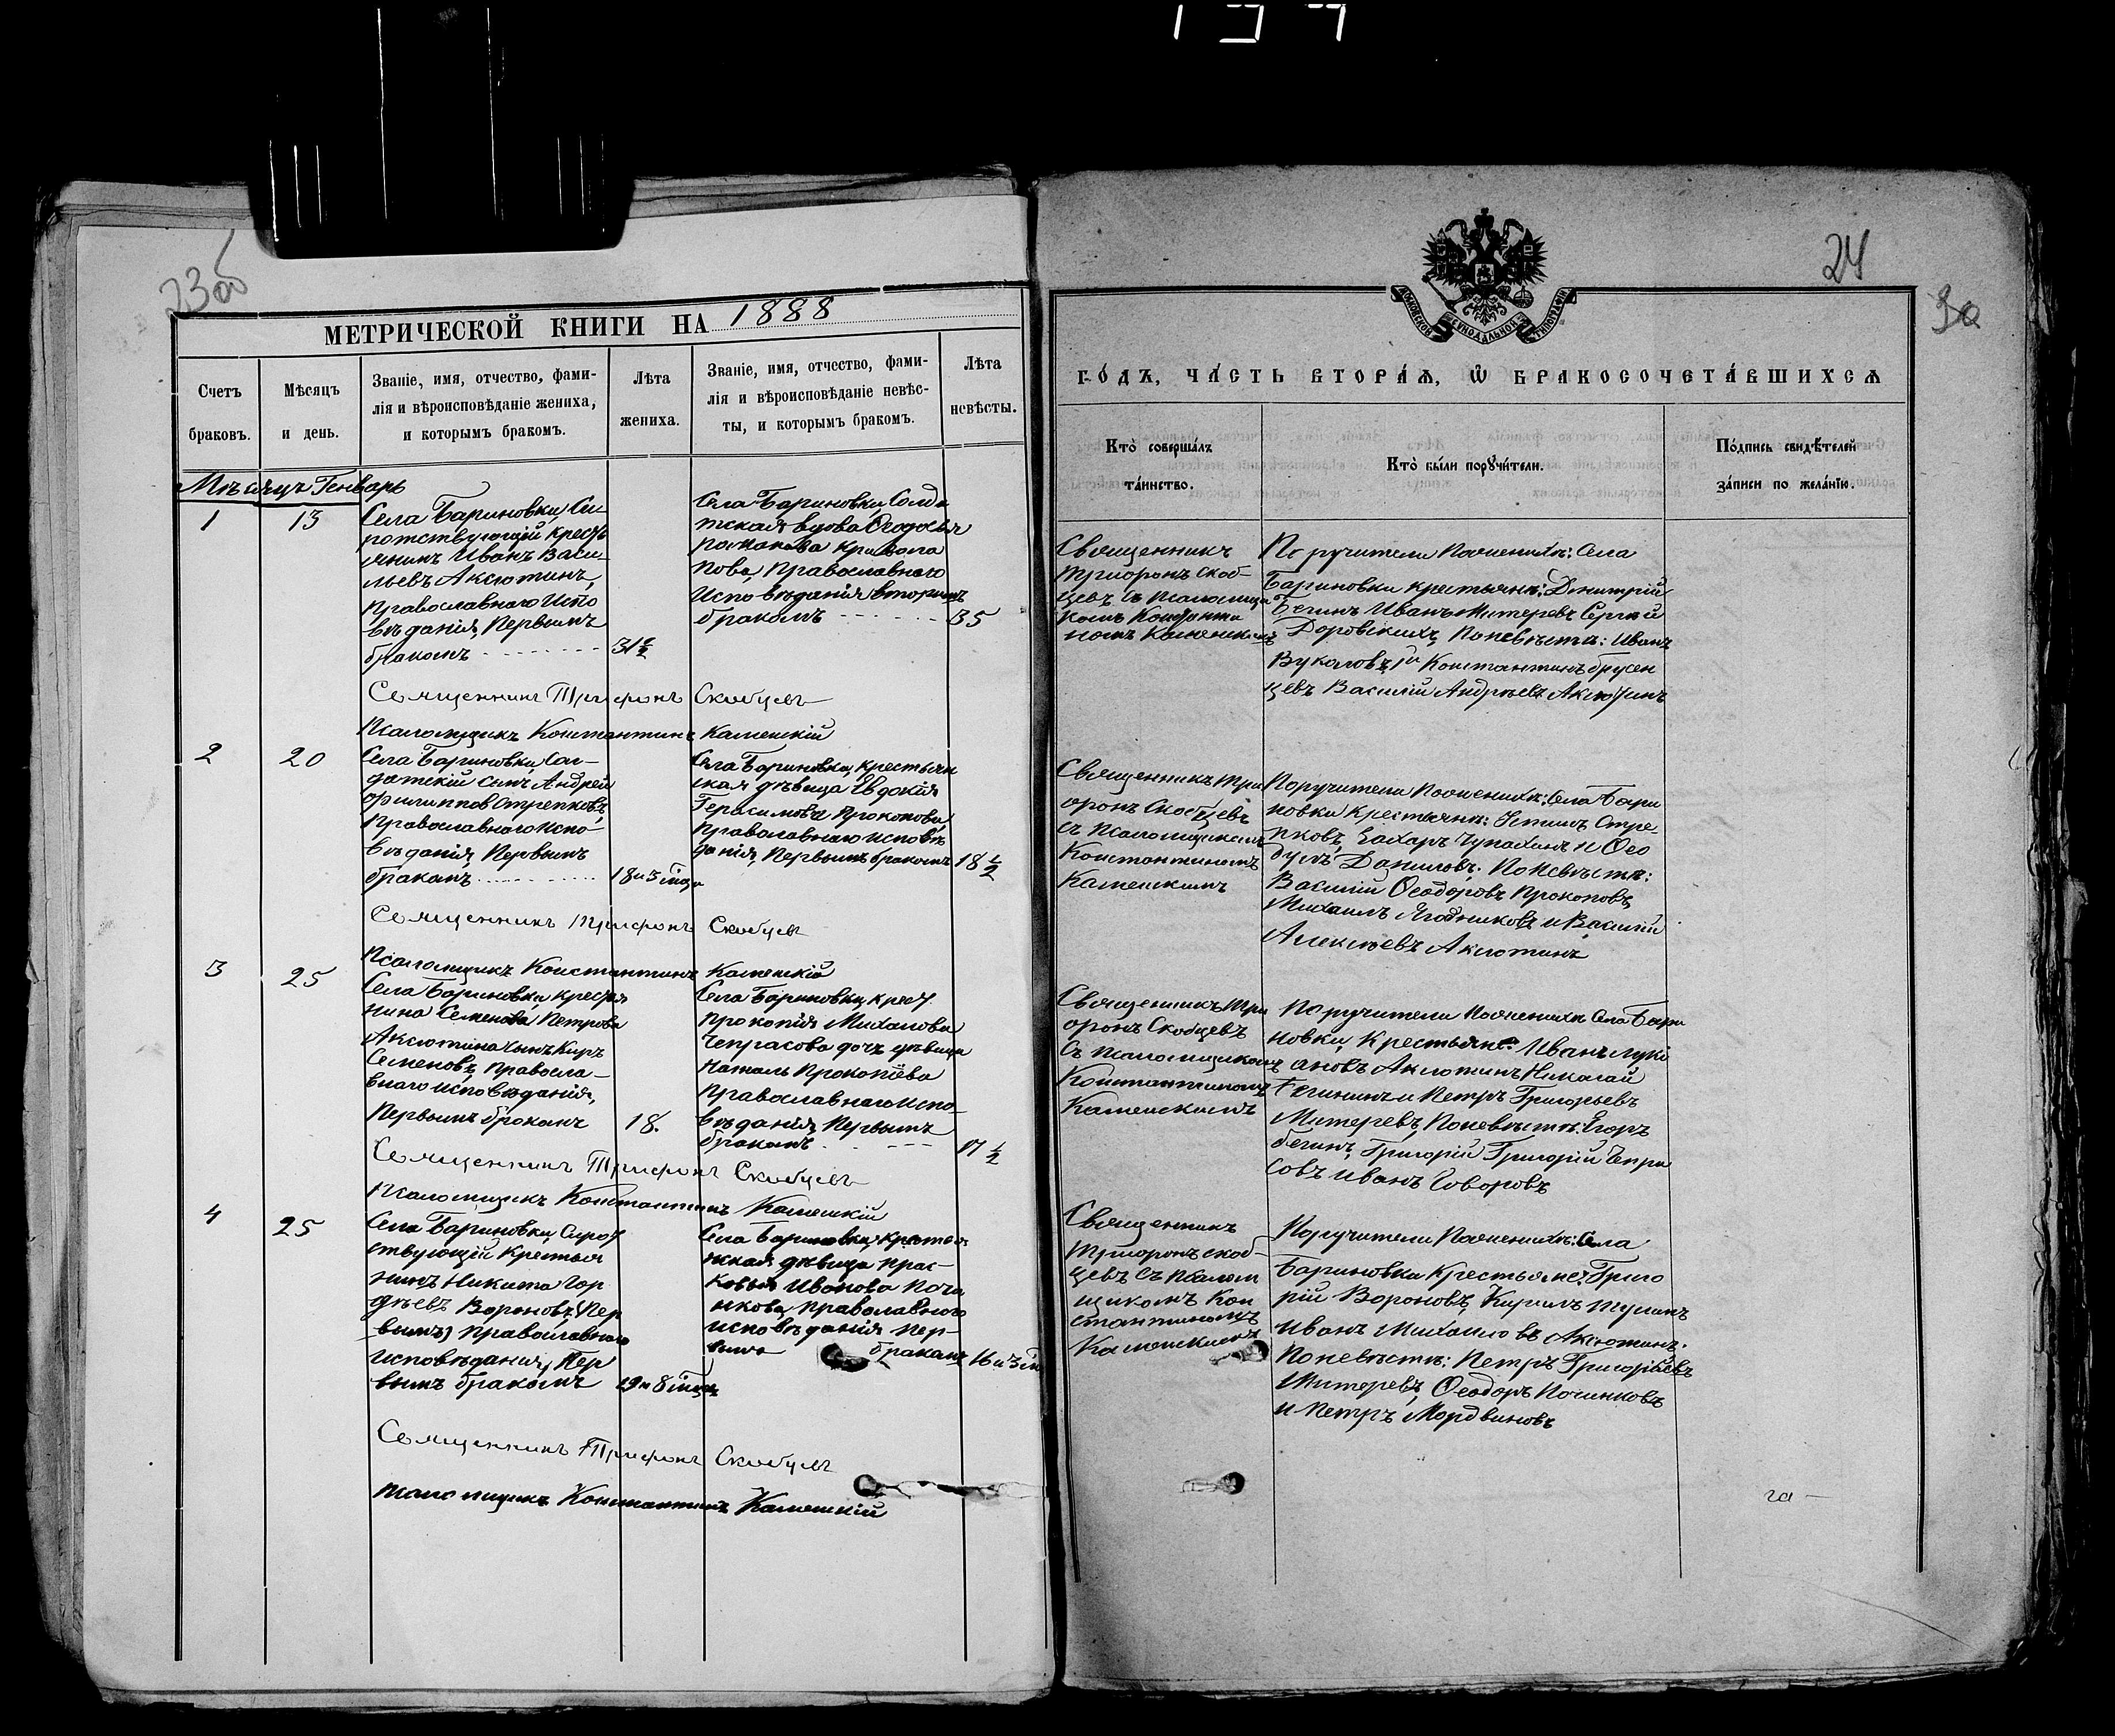 23об
МЕТРИЧЕСКОЙ КНИГИ НА 1888
Счетъ браковъ.
Мѣсяцъ и день.
Званіе, имя, отчество, фами-
лія и вѣроисповѣданіе жениха,
и которымъ бракомъ.
Лѣта жениха.
Званіе, имя, отчество, фами-
лія и вѣроисповѣданіе невѣс-
ты, и которымъ бракомъ.
Лѣта невѣсты.
Мѣсяцъ Генварь
1
13
Села Бариновки, Си-
ротствующій кресть
янинъ Иванъ Васи-
льевъ Аксютинъ,
Православнаго Испо
вѣданія, Первымъ
бракомъ
31½
Села Бариновки, Солда
тская вдова Ѳеодосья
Романова
Православнаго
Исповѣданія вторымъ
бракомъ
35
Священникъ Трифонъ Скобцевъ
Псаломщикъ Константинъ Каменскій
2
20
Села Бариновки, Сол-
датскій сынъ Андрей
Филипповъ Стрепковъ,
Православнаго Испо-
вѣданія, Первымъ
бракомъ
18 и 3 мца
Села Бариновки, крестьян
ская дѣвица Евдокія
Герасимова Прокопова
Православнаго исповѣ
данія, Первымъ бракомъ
18½
Священникъ Трифонъ Скобцевъ
Псаломщикъ Константинъ Каменскій
3
25
Села Бариновки крестья
нина Семенова Петрова
Аксютина сынъ Киръ
Семеновъ, Правосла-
внаго исповѣданія,
Первымъ бракомъ
18.
Села Бариновки, крест.
Прокопія Михаилова
Чепрасова дочь дѣвица
Наталья Прокопіева
Православнаго испо-
вѣданія, Первымъ
бракомъ
17½
Священникъ Трифонъ Скобцевъ
Псаломщикъ Константинъ Каменскій
4
25
Села Бариновки, Сирот
ствующій Крестья
нинъ Никита Гор
дѣевъ Вороновъ, (Пер
вымъ) Православнаго
исповѣданія, Пер
вымъ бракомъ
19 и 8 мцъ
Села Бариновки, кресть
янская дѣвица Прас-
ковья Иванова Почи
нкова, Православнаго
исповѣданія Пер-
вымъ бракомъ
16 и 3 м
Священникъ Трифонъ Скобцевъ
Псаломщикъ Константинъ Каменскій
24
МОСКОВСКОЙ СѴНОДАЛЬНОЙ ТИПОГРАФІИ
ГО́ДЪ, ЧА́СТЬ ВТОРА́Я, Ѡ҆ БРАКОСОЧЕТА́ВШИХСЯ
Кто̀ соверша́лъ
та́инство.
Кто̀ бы́ли поручи́тели.
По́дпись свидѣ́телей
за́писи по жела́нїю.
Священникъ
Трифонъ Скоб-
цевъ съ Псаломщи
комъ Константи
номъ Каменскимъ
Поручители По женихѣ: Села
Бариновки крестьяне: Димитрій
Бегинъ Иванъ Митеревъ Сергѣй
Доровскихъ, По невѣстѣ: Иванъ
Вуколовъ, Константинъ Брусен
цевъ Василій Андреевъ Аксютинъ
Священникъ Три
фонъ Скобцевъ
съ Псаломщикомъ
Константиномъ
Каменскимъ
Поручители По женихѣ: Села Бари
новки крестьяне: Устинъ Стре-
пковъ, Захаръ Чупахинъ и Ѳео
дулъ Даниловъ. По Невѣстѣ:
Василій Ѳеодоровъ Прокоповъ,
Михаилъ Ягодниковъ и Василій
Алексѣевъ Аксютинъ
Священникъ Три
фонъ Скобцевъ
Съ Псаломщикомъ
Константиномъ
Каменскимъ
Поручители По женихѣ Села Бари
новки, Крестьяне: Иванъ Луки
ановъ Аксютинъ Николай
Бегинин и Петръ Григорьевъ
Митеревъ, По невѣстѣ: Егоръ
Бегинъ, Григорій Григорій Чепра
совъ Иванъ Говоровъ
Священникъ
Трифонъ Скоб-
цевъ съ Псалом
щикомъ Кон
стантиномъ
Каменскимъ
Поручители По женихѣ: Села
Бариновки Крестьяне: Григо
рій Вороновъ, Кирилъ
Иванъ Михаиловъ Аксютинъ.
По невѣстѣ: Петръ Григорьевъ
Митеревъ, Ѳеодоръ Починковъ
и Петръ Мордвиновъ